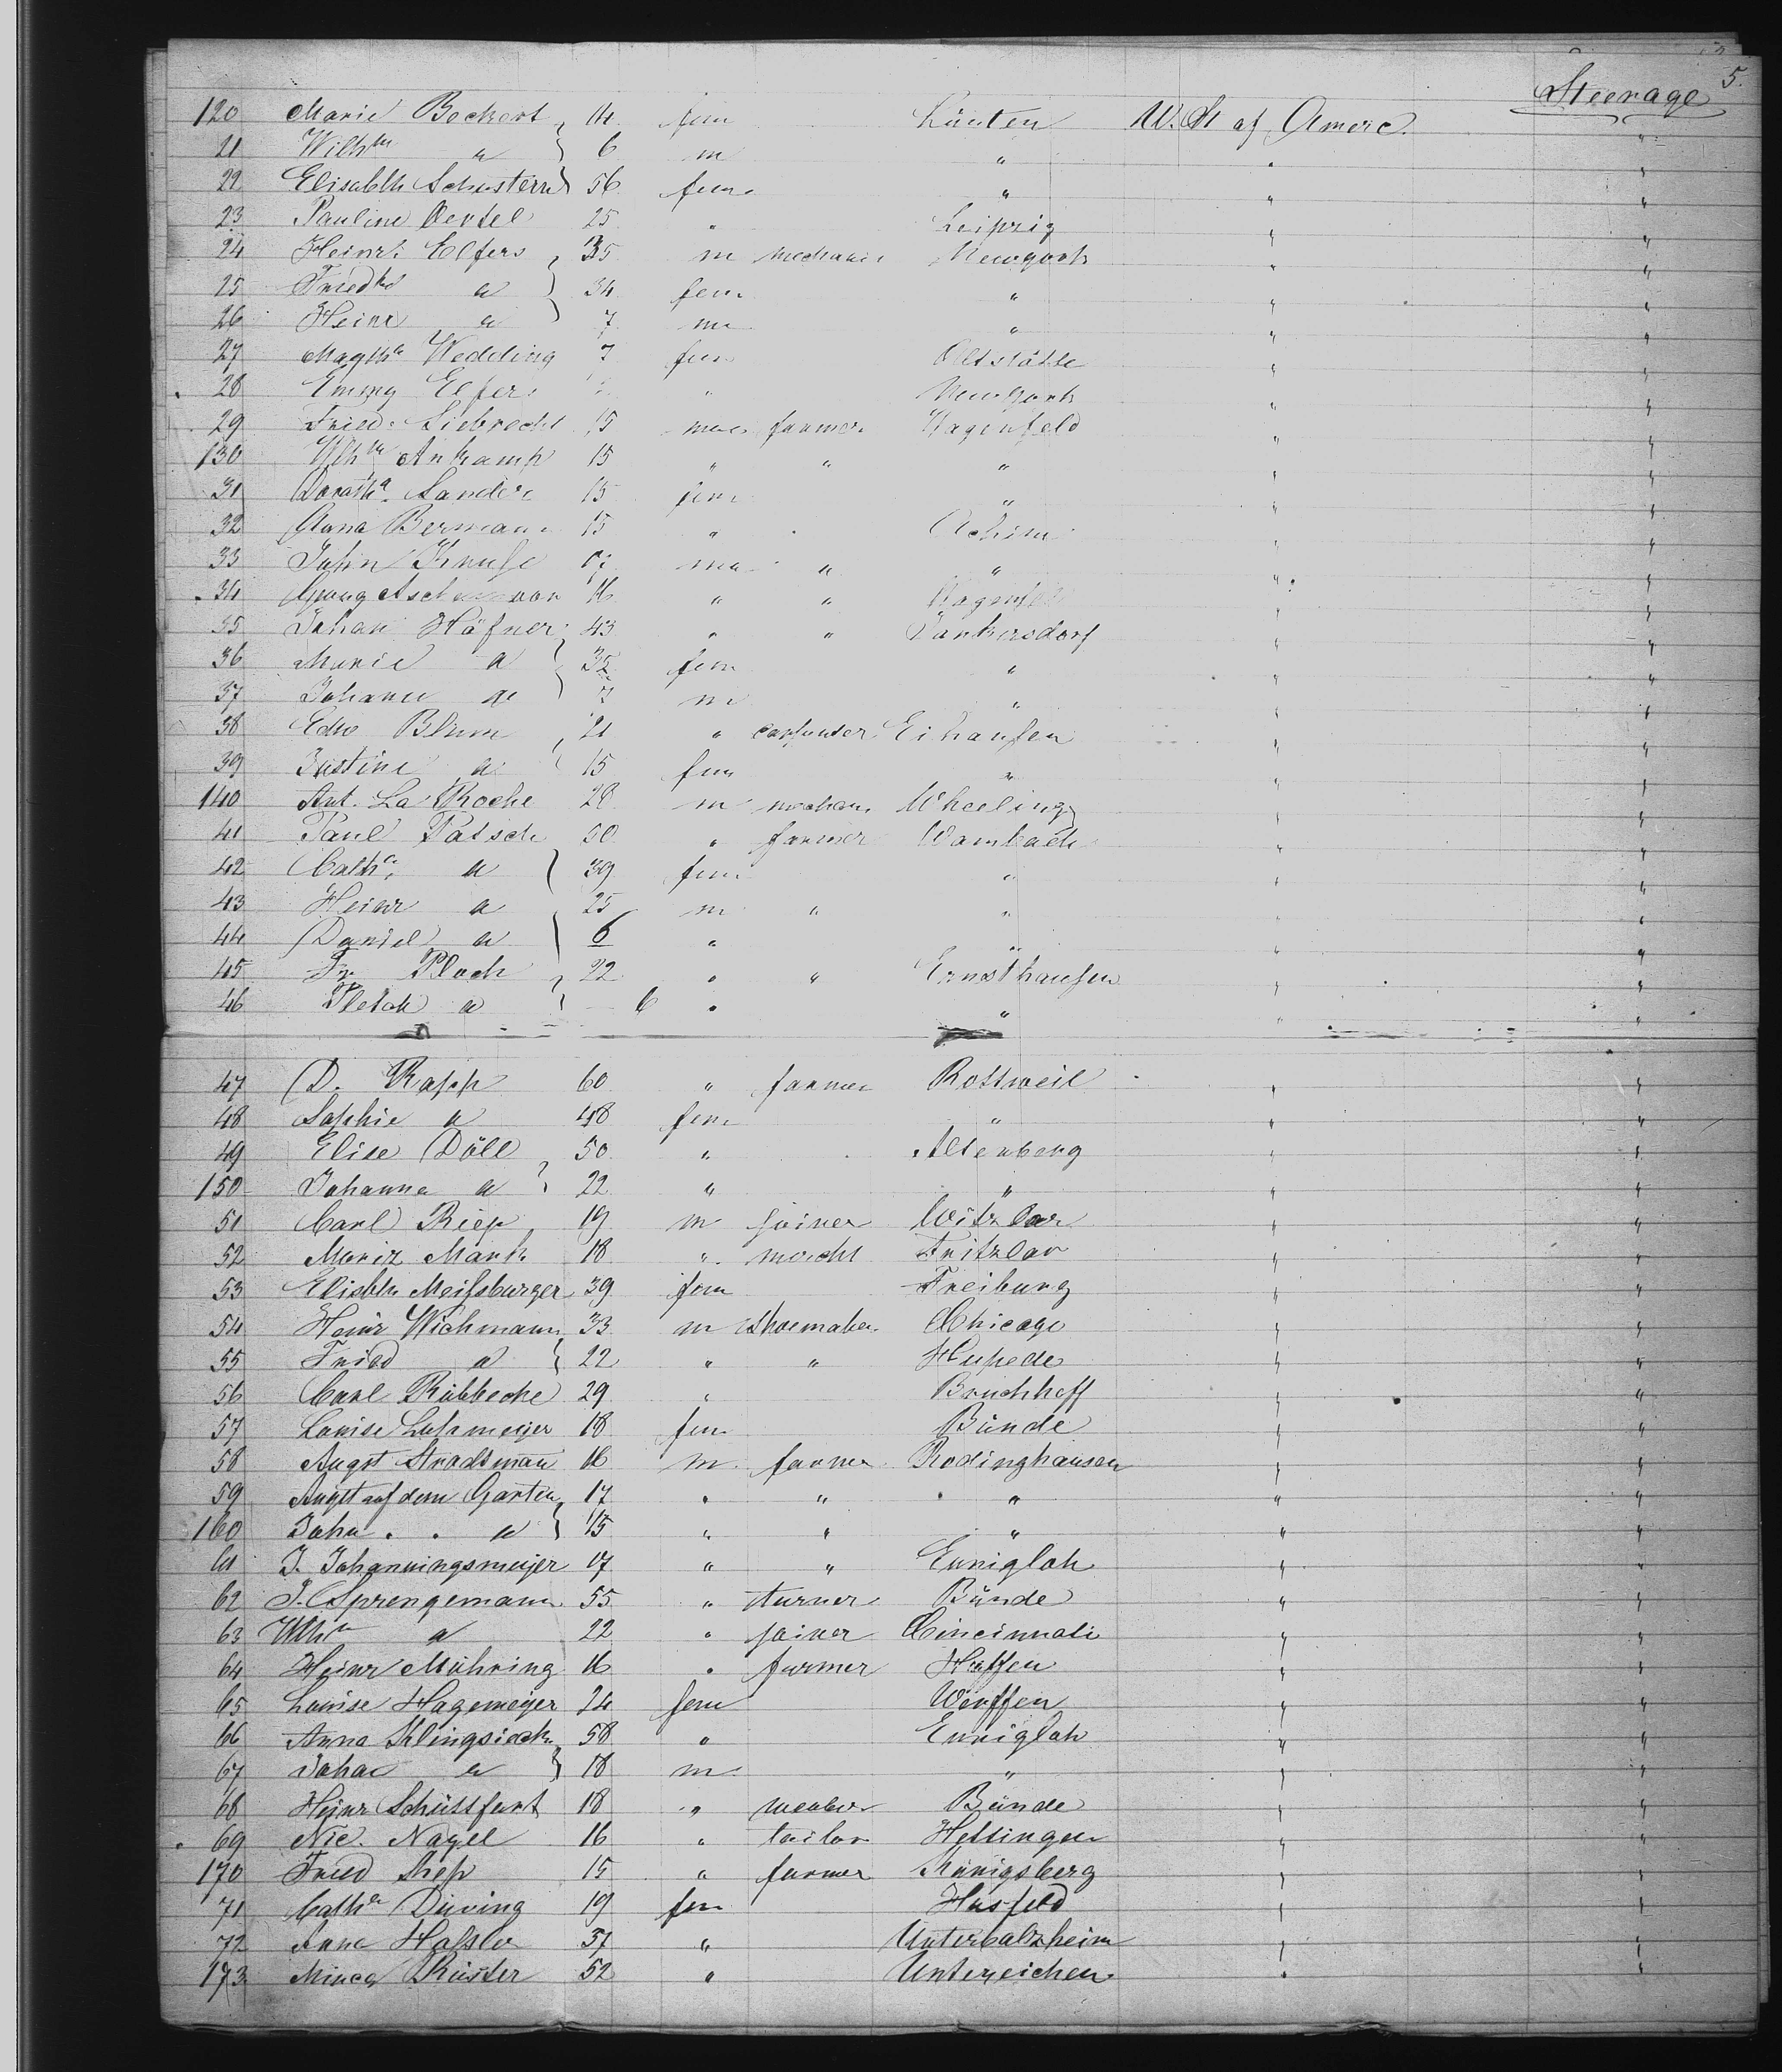 5.
Steerage
120 Marie Beckert 14 fem Lauten U. St of Americ.
21 Wilhm " 6 m " " "
22 Elisabth Schustern 56 fem " " "
23 Pauline Oertel 25 " Leipzig " "
24 Heinr. Elfers 35 m mechanic Newyork " "
25 Friedke " 34 fem " " "
26 Heinr " 7 m " " "
27 Magthe Wedding 7 fem Altstätte " "
28 Emmy Elfers " Newyork " "
29 Fried. Liebrecht 15 m farmer Hagenfeld " "
130 Wlhm Ankamp 15 " " " " "
31 Doratha Sander 15 fem " " "
32 Anna Bermann 15 " Achim " "
33 John Kruse 17 ma " " " "
34 Georg 16 " " Hagenfeld " "
35 Johan Häfner 43 " " Jankersdorf " "
36 Marie " 35 fem " " "
37 Johann " 7 m " " "
38 Edw Blum 21 " carpenter Eihausen " "
39 Justine " 15 fem " " "
140 Ant. La Roche 28 m mechan Wheeling " "
41 Paul Patsch 60 " farmer Wambach " "
42 Cathe " 39 fem " " "
43 Heinr " 25 m " " " "
44 Daniel " 6 " " "
45 Fr Ploch 22 " " Ernsthausen " "
46 Pletch " 6 " " " "
47 D. Rapp 60 " farmer Rottweil " "
48 Sophie " 48 fem " " "
49 Elise Döll 50 " Altenberg " "
150 Johanna " 22 " " " "
51 Carl Riep 19 m joiner Witzlar " "
52 Moriz Mark 18 " mercht Fritzlar " "
53 Elisbth Meissburger 39 fem Freiburg " "
54 Heinr Wichmann 33 m Shoemaker Chicago " "
55 Fried " 22 " " Hupede " "
56 Carl Rübbecke 29 " Bruchhoff " "
57 Louise Luhmeijer 18 fem Bünde " "
58 Augst Stradtmann 16 m farmer Rodinghausen " "
59 Augst auf dem Garten 17 " " " " "
160 John . . " 15 " " " " "
61 J. Johanningsmeijer 17 " " Ennigloh " "
62 J. Sprengemann 55 " turner Bünde " "
63 Wlhm " 22 " joiner Cincinnati " "
64 Heinr Mühring 16 " farmer Haffen " "
65 Louise Hagemeijer 24 fem Werffen " "
66 Anna Klingsieck 58 " Ennigloh " "
67 Johan " 18 m " " "
68 Heinr Schüttfort 18 " weaber Bünde " "
69 Nic. Nagel 16 " tailor Hettingen " "
170 Fried Shep 15 " farmer Königsberg " "
71 Cathe Düving 19 fem Hasfeld " "
72 Anna Hassler 37 " Unterbalzheim " "
173 Minca Rüster 52 " Untereichen " "